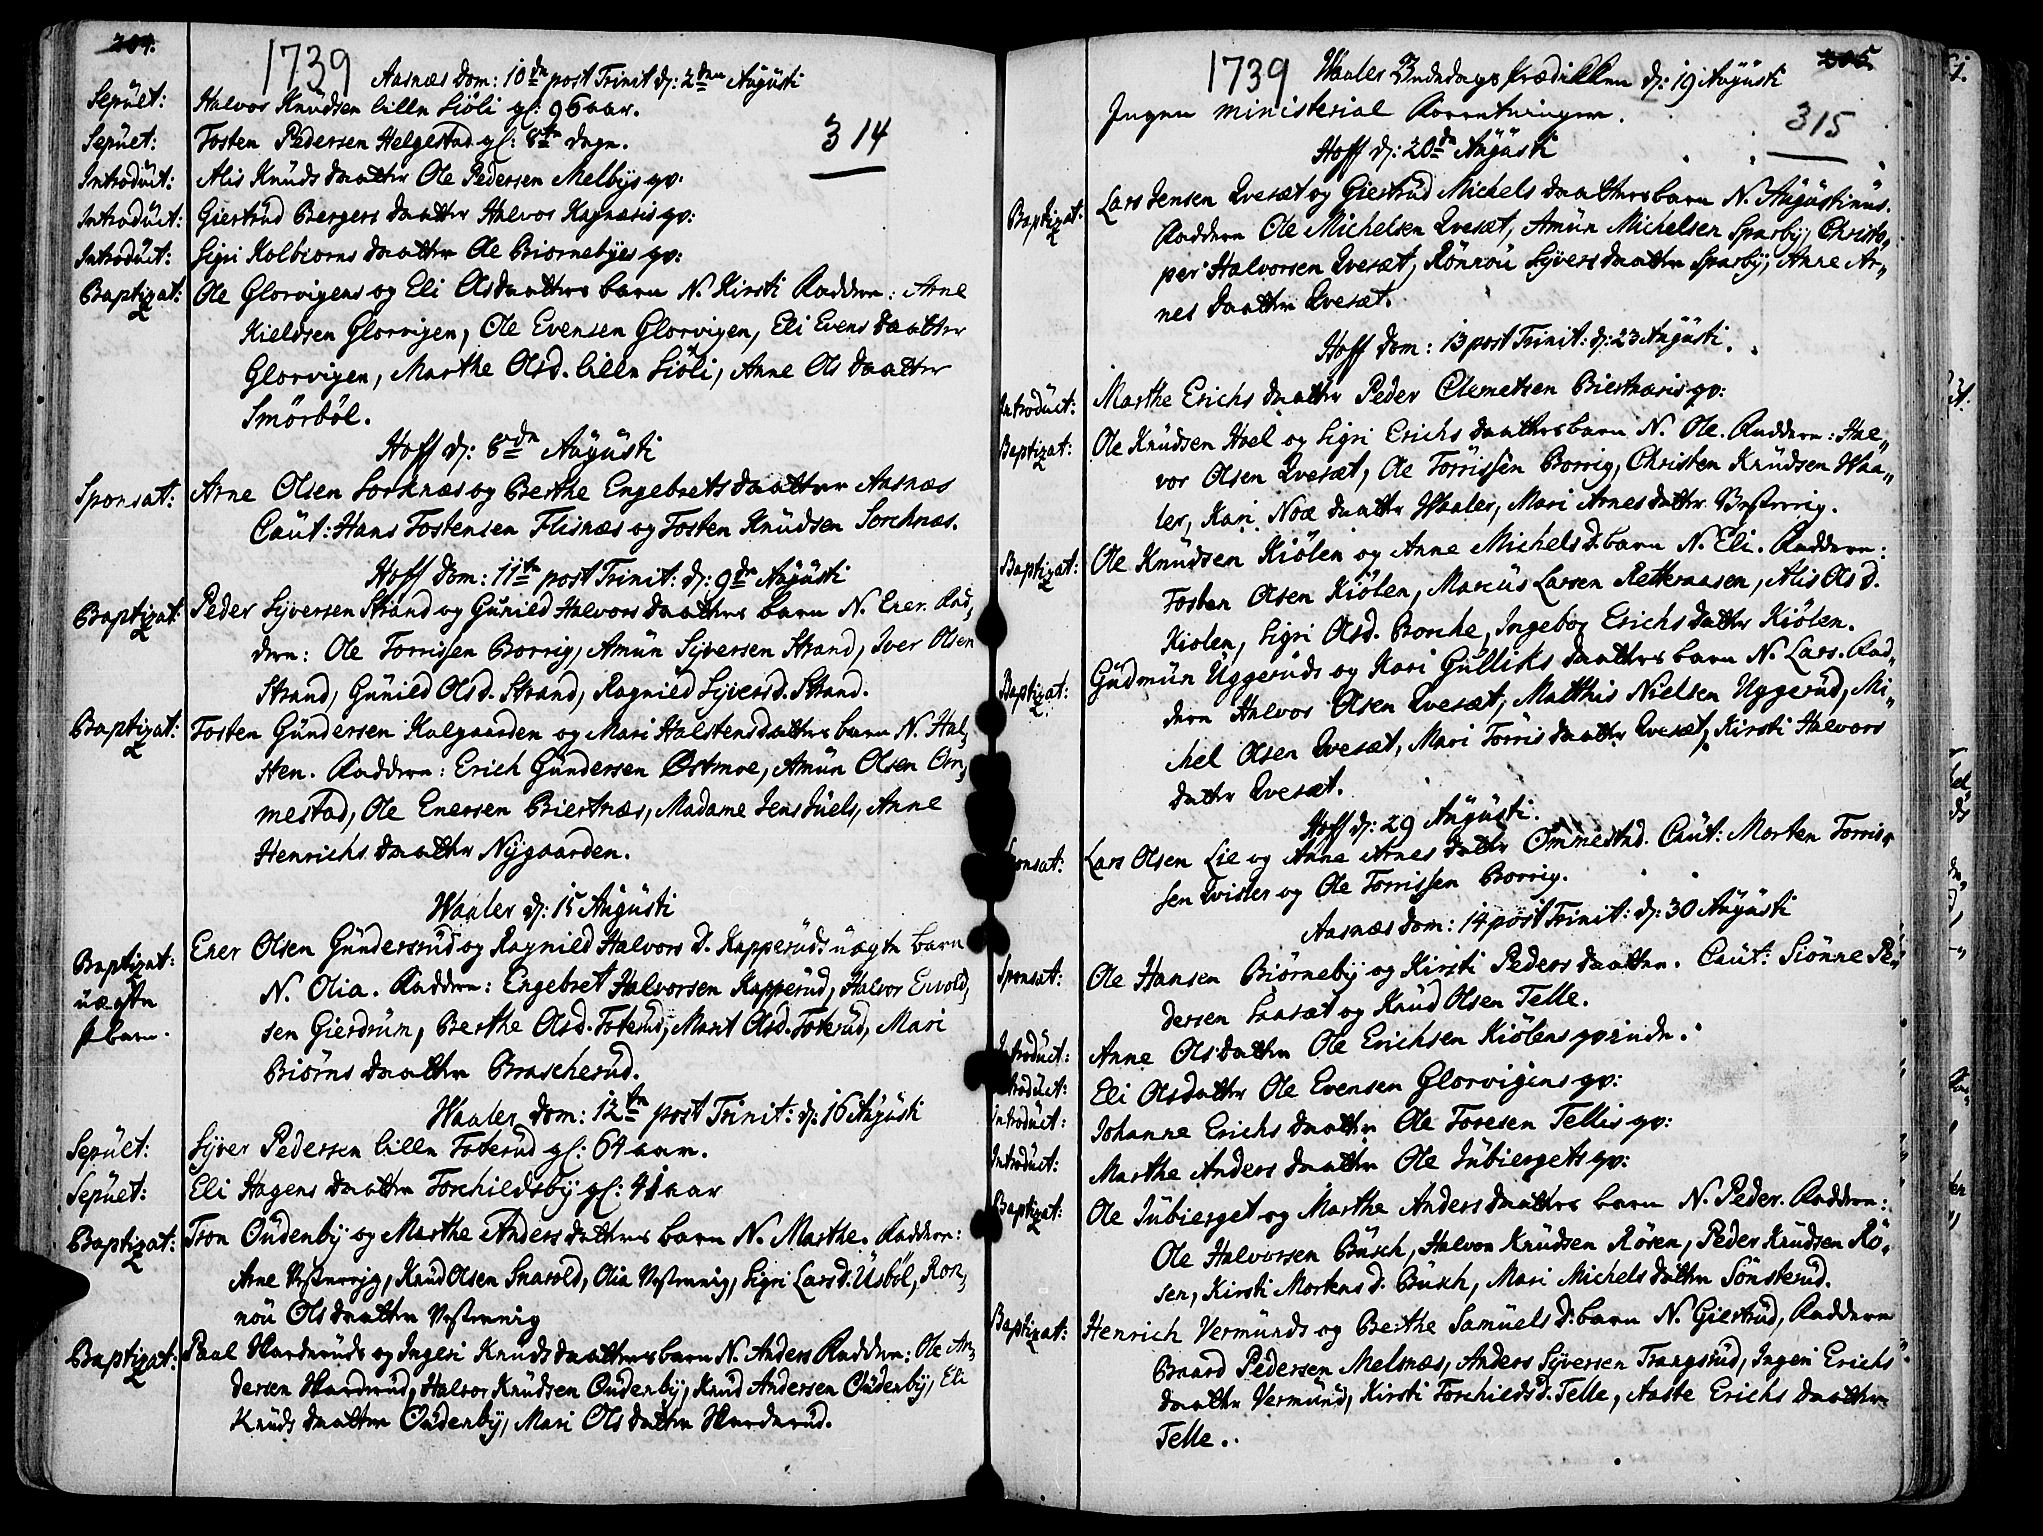 204.
1739
Aasnæs Dom: 10de post Trinit d: 2den Augusti
Sepult: Halvor Knudsen lille Siöli gl: 96 aar.
314
Sepult: Tosten Pedersen Helgestad gl: 8te dage.
Introduct: Alis Knuds daatter Ole Pedersen Melbÿs qv:
Introduct: Giertrud Bergers daatter Halvor Kagnæsis qv:
Introduct: Sigri Kolbiorns daatter Ole Biornebÿes qv:
Baptizat: Ole Glorvigens og Eli Olsdaatters barn N. Kirsti Faddere: Arne
Kieldsen Glorvigen, Ole Evensen Glorvigen, Eli Evens daatter
Glorvigen, Marthe Olsd. lille Siöli, Anne Ols daatter
Smörböl.
Hoff d: 8de Augusti
Sponsat: Arne Olsen Sorknæs og Berthe Engebrets daatter Aasnæs
Caut: Hans Tostensen Flisnæs og Tosten Knudsen Sorchnæs.
Hoff Dom: 11te post Trinit: d: 9de Augusti
Baptizat: Peder Sÿversen Strand og Gunild Halvors daatters barn N. Ener. Fad,
dere: Ole Torrissen Borrig, Amun Sÿversen Strand, Iver Olsen
Strand, Gunild Olsd. Strand, Ragnild Sÿversd. Strand.
Baptizat: Tosten Gundersen Kalgaarden og Mari Halstensdatters barn N. Hal,
sten. Faddere: Erich Gundersen Østmoe, Amun Olsen Om,
mestad, Ole Enersen Biertnæs, Madame Jens Juels, Anne
Henrichs daatter Nÿgaarden.
Waaler d: 15 Augusti
Baptizat: Ener Olsen Gundersrud og Ragnild Halvors D. Kapperuds uægte barn
uægte N. Olia. Faddere: Engebret Halvorsen Kapperud, Halvor Envold,
barn. sen Gierdrum, Berthe Olsd. Foterud, Marit Olsd. Foterud, Mari
Biörns daatter Brascherud.
Waaler Dom: 12te post Trinit: d: 16 Augusti
Sepult: Sÿver Pedersen lille Foterud gl: 64 aar.
Sepult: Eli Hagens daatter Torchildsbÿ gl: 41 aar
Baptizat: Tron Oudenbÿ og Marthe Anders datters barn N. Marthe. Faddere:
Arne, Knud Olsen Snarold, Olia, Sigri Larsd: Usböl, Ron,
nou Ols daatter
Baptizat: Paal Harderuds og Ingeri Knuds daatters barn N. Anders Faddere: Ole An,
dersen Harderud, Halvor Knudsen Oudenbÿ, Knud Andersen Oudenbÿ, Eli
Knuds daatter Oudenbÿ, Mari Ols datter Harderud.
205.
1739
Waaler Ondedags prædikken d: 19 Augusti
Ingen ministerial Forretninger.
315
Hoff d: 20de Augusti
Baptizat: Lars Jensen Qvesæt og Giertrud Michels daatters barn N. Augustinus.
Faddere Ole Michelsen Qvesæt, Amun Michelsen Sparbÿ, Christo,
per Halvorsen Qvesæt, Rönnou Sÿvers daatter Sparbÿ, Anne Ar,
nes daatter Qvesæt.
Hoff Dom: 13 post Trinit: d: 23 Augusti.
Introduct: Marthe Erichs daatter Peder Clemetsen Biertnæsis qv:
Baptizat: Ole Knudsen Hoel og Sigri Erichs daatters barn N. Ole. Faddere: Hal,
vor Olsen Qvesæt, Ole Torrissen Borrig, Christen Knudsen Waa,
ler, Kari Noæ daatter Waaler, Mari Arnesdatter.
Baptizat: Ole Knudsen Kiölen og Anne Michels D. barn N. Eli. Faddere:
Tosten Olsen Kiölen, Marcus Larsen Retteraasen, Alis Ols d.
Kiolen, Sigri Olsd. Borche, Ingebor Erichs datter Kiölen.
Baptizat: Gudmun Uggeruds og Kari Gulliks daatters barn N. Lars. Fad,
dere Halvor Olsen Qvesæt, Matthis Nielsen Uggerud, Mi,
chel Olsen Qvesæt, Mari Torris daatter Qvesæt, Kirsti Halvors
datter Qvesæt.
Hoff d: 29 Augusti.
Sponsat: Lars Olsen Lie og Anne Arnes datter Ommestad. Caut: Morten Torris,
sen Qvister og Ole Torrissen Borrig.
Aasnæs Dom: 14 post Trinit: d: 30 Augusti
Sponsat: Ole Hansen Biörnebÿ og Kirsti Peders daatter. Caut: Siönne Pe,
dersen Saasæt og Knud Olsen Telle.
Introduct: Anne Olsdatter Ole Erichsen Kiölens qvinde.
Introduct: Eli Olsdatter Ole Evensen Glorvigens qv:
Introduct: Johanne Erichs daatter Ole Toresen Tellis qv:
Introduct: Marthe Anders daatter Ole Jubiergets qv:
Baptizat: Ole Jubierget og Marthe Anders daatters barn N. Peder. Faddere:
Ole Halvorsen Busch, Halvor Knudsen Rösen, Peder Knudsen Rö,
sen, Kirsti Mortens d. Buskh, Mari Michels datter Sönsterud.
Baptizat: Henrich Vermunds og Berthe Samuels D: barn N. Giertrud, Faddere
Baard Pedersen Melsnæs, Anders Sÿversen Trangsrud, Ingeri Erichs
daatter Vermund, Kirsti Torchildsd. Telle, Aaste Erichs daatter
Telle.